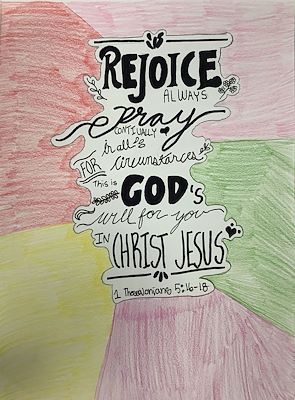 REJOICE
ALWAYS
pray
CONTIUALLY
in all
FOR circumstances
This is
GOD's
will for you
IN CHRIST JESUS
1 Thessalonians 5:16-18